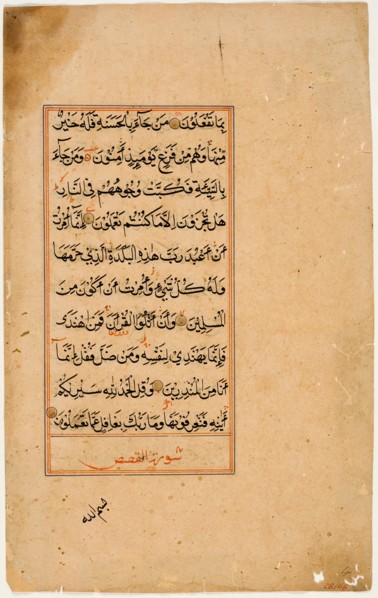 بِمَا تَفْعَلُونَ مَنْ جَاءَ بِالْحَسَنَةِ فَلَهُ خَيْرٌ
مِنْهَا وَهُمْ مِنْ فَزَعٍ يَوْمَئِذٍ آمِنُونَ وَمَنْ جَاءَ
بِالسَّيِّئَةِ فَكُبَّتْ وُجُوهُهُمْ فِي النَّارِ
هَلْ تُجْزَوْنَ إِلَّا مَا كُنْتُمْ تَعْمَلُونَ إِنَّمَا أُمِرْتُ
أَنْ أَعْبُدَ رَبَّ هٰذِهِ الْبَلْدَةِ الَّذِي حَرَّمَهَا
وَلَهُ كُلُّ شَيْءٍ وَأُمِرْتُ أَنْ أَكُونَ مِنَ
الْمُسْلِمِينَ وَأَنْ أَتْلُوَ الْقُرْآنَ فَمَنِ اهْتَدَى
فَإِنَّمَا يَهْتَدِي لِنَفْسِهِ وَمَنْ ضَلَّ فَقُلْ إِنَّمَا
أَنَا مِنَ الْمُنْذِرِينَ وَقُلِ الْحَمْدُ لِلّٰهِ سَيُرِيكُمْ
آيَاتِهِ فَتَعْرِفُونَهَا وَمَا رَبُّكَ بِغَافِلٍ عَمَّا تَعْمَلُونَ
سُورَةُ الْقَصَصِ
بسم الله